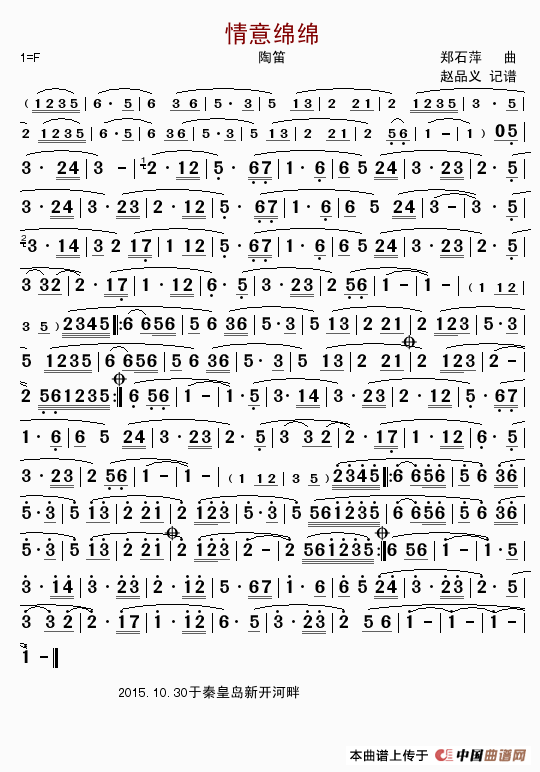 情意绵绵
1=F 陶笛 郑石萍 曲
赵品义 记谱
( 1 2 3 5 | 6 · 5 | 6 3 6 | 5 · 3 | 5 1 3 | 2 2 1 | 2 1 2 3 5 | 3 · 5 |
2 1 2 3 5 | 6 · 5 | 6 3 6 | 5 · 3 | 5 1 3 | 2 2 1 | 2 5 6 | 1 – | 1 ) | 0 5 |
3 · 2 4 | 3 – | 1 2 · 1 2 | 5 · 6 7 | 1 · 6 | 6 5 2 4 | 3 · 2 3 | 2 · 5 |
3 · 2 4 | 3 · 2 3 | 2 · 1 2 | 5 · 6 7 | 1 · 6 | 6 5 2 4 | 3 – | 3 · 5 |
2 3 · 1 4 | 3 2 1 7 | 1 1 2 | 5 · 6 7 | 1 · 6 | 6 5 2 4 | 3 · 2 3 | 2 · 5 |
3 3 2 | 2 · 1 7 | 1 · 1 2 | 6 · 5 | 3 · 2 3 | 2 5 6 | 1 – | 1 – | ( 1 1 2 |
3 5 ) | 2 3 4 5 |: 6 6 5 6 | 5 6 3 6 | 5 · 3 | 5 1 3 | 2 2 1 | 2 1 2 3 | 5 · 3 |
5 1 2 3 5 | 6 6 5 6 | 5 6 3 6 | 5 · 3 | 5 1 3 | 2 2 1 | 2 1 2 3 | 2 – |
2 5 6 1 2 3 5 :| 6 5 6 | 1 – | 1 · 5 | 3 · 1 4 | 3 · 2 3 | 2 · 1 2 | 5 · 6 7 |
1 · 6 | 6 5 2 4 | 3 · 2 3 | 2 · 5 | 3 3 2 | 2 · 1 7 | 1 · 1 2 | 6 · 5 |
3 · 2 3 | 2 5 6 | 1 – | 1 – | ( 1 1 2 | 3 5 ) | 2 3 4 5 |: 6 6 5 6 | 5 6 3 6 |
5 · 3 | 5 1 3 | 2 2 1 | 2 1 2 3 | 5 · 3 | 5 5 6 1 2 3 5 | 6 6 5 6 | 5 6 3 6 |
5 · 3 | 5 1 3 | 2 2 1 | 2 1 2 3 | 2 – | 2 5 6 1 2 3 5 :| 6 5 6 | 1 – | 1 · 5 |
3 · 1 4 | 3 · 2 3 | 2 · 1 2 | 5 · 6 7 | 1 · 6 | 6 5 2 4 | 3 · 2 3 | 2 · 5 |
3 3 2 | 2 · 1 7 | 1 · 1 2 | 6 · 5 | 3 · 2 3 | 2 5 6 | 1 – | 1 – |
1 – ‖
2015.10.30于秦皇岛新开河畔
本曲谱上传于 中国曲谱网